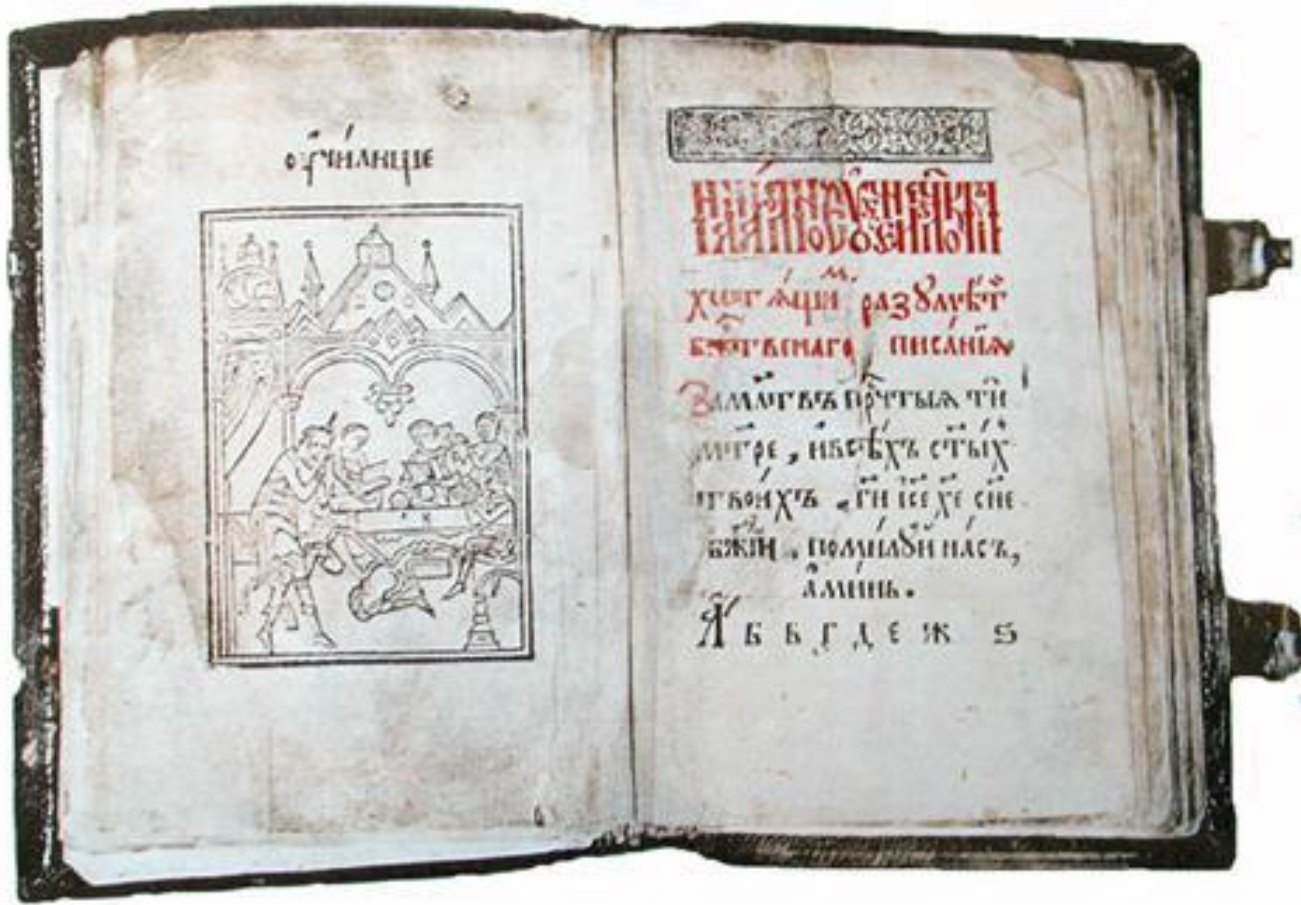 оучи́лище
хотѧ́щимъ разꙋмѣ́ти
бж҇твенаго писа́нїѧ
За мл҃твъ прⷱ҇тыѧ ти
мт҃ре , и҆всѣ́хъ ст҃ы́х
твои́хъ , гд҇и і҆се хе сн҃е
бж҃їи , поми́лꙋй на́съ,
а҆ми́нь.
А б в г д е ж ѕ